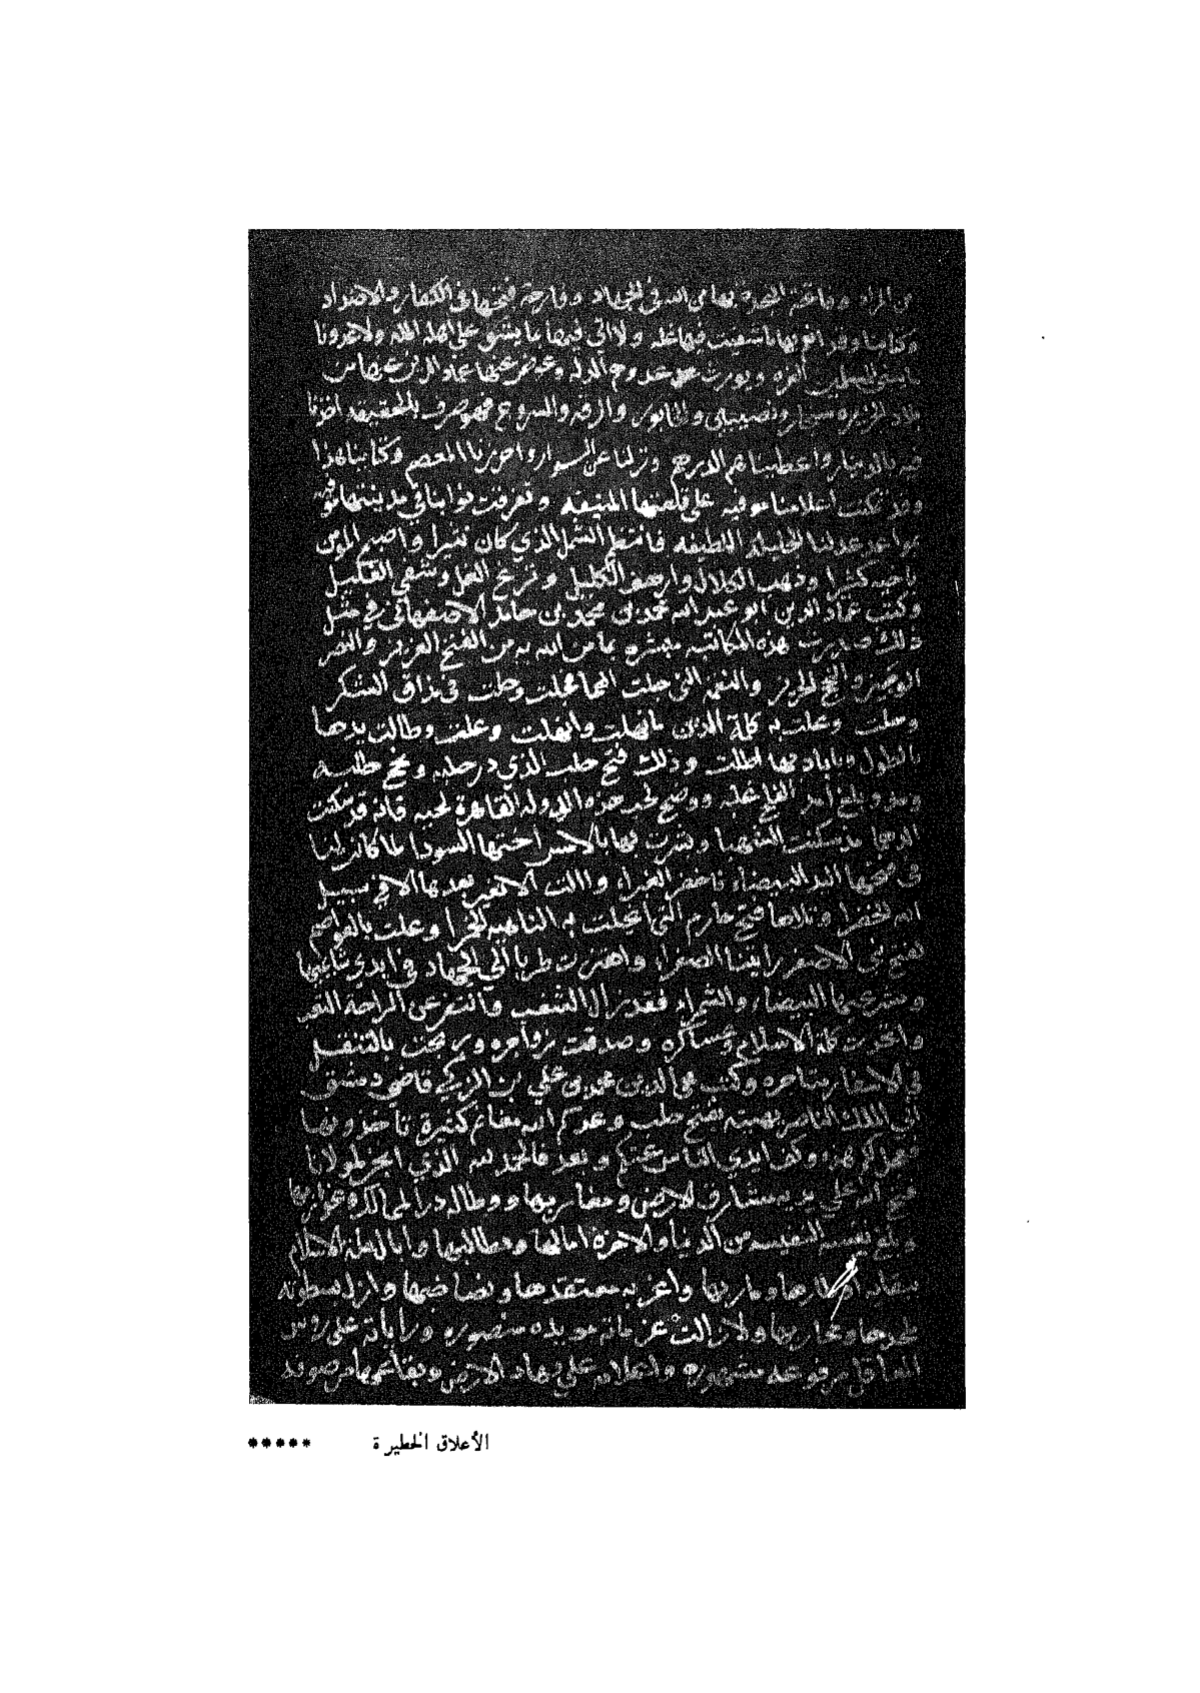 من المراد وفاتحة الهجرة بها من الله في الجهاد وفارحة فتحها في الكفار والاضداد
وكتابنا وقد انعم بها ما شفيت فيها غله ولا اتى فيها ما يشق على اهل المله ولا غرونا
ما يسقى المسلمين العزه ويورث عدوهم الذله وعوض عنها عماد الدين عنها من
بلاد الجزيره سنجار ونصيبين والخابور والرقه والسروج فهو صرف بالحقيقه اخذنا
فيه بالدينار واعطيناهم الدرهم ونزلنا عن السوار واحرزنا المعصم وكتابنا هذا
وقد تمكنت اعلامنا موفيه على قلعتها المنيفه وتصرفت نوابنا في مدينتها موفيه
بمواعد عدلنا الجليله اللطيفه فانتظم الشمل الذي كان نثيرا واصبح المؤمن
باخيه كثيرا وذهب الكلال وارهف الكليل ونزع الغل وشفي الغليل
وكتب عماد الدين ابو عبد الله محمد بن محمد بن حامد الاصفهاني في مثل
ذلك صدرت هذه المكاتبه مبشره بما من الله به من الفتح العزيز والنصر
الوجيز والنجح الحريز والنعم التي جلت لما تجلت وحلت في مذاق الشكر
وحلت وعلت به كلمة الدين ما نهلت وانهلت وعلت وطالت يدها
بالطول وباياديها اطلت وذلك فتح حلب الذي در حلبه ونجح طلبه
وهو وبلغ امد الفلج غلبه ووضح لحب هذه الدوله القاهرة لحبه فانه قد سكنت
الدهما مذ سكنت الشهبا وبشرت بها بالامس اختها السودا لما كان لنا
في فتحها اليد البيضاء فاخضر الغبراء والت الا تغير بعدها الا في سبيل
الله الخضرا وتلاها فتح حارم التي انجلت به الناهيه الحمرا وعلت بالعواصم
لفتح بني الاصفر رايتنا الصفراء واهتزت طربا الى الجهاد في ايدي
ومشرعيها البيضاء والسمراء فقد زال الشغب وانتزع من الراحة التعب
واتحدت كلمة الاسلام وعساكره وصدقت زواجره وربحت بالتنقل
في الاسفار متاجره وكتب محي الدين محمد بن علي بن الزكي قاضي دمشق
الى الملك الناصر يهنيه بفتح حلب وعدكم الله مغانم كثيرة تاخذونها
فعجل لكم هذه وكف ايدي الناس عنكم وبعد فالحمد لله الذي انجز لمولانا
فتح الله على يديه مشارق الارض ومغاربها ووطا له ذرا الممالك وغواربها
وبلغ نفسه النفيسه من الدنيا والاخرة امالها ومطالبها وانال اهل الاسلام
ببقايه اوطارها وماربها واعز به معتقدها واذل بسطوته
ملحدها ومحاربها ولا زالت عزماته مويده منصوره وراياته على روس
المعاقل مرفوعه مشهوره واعلامه على مهاد الارض وبقاعها مرصوفه
الأعلاق الخطيرة *****